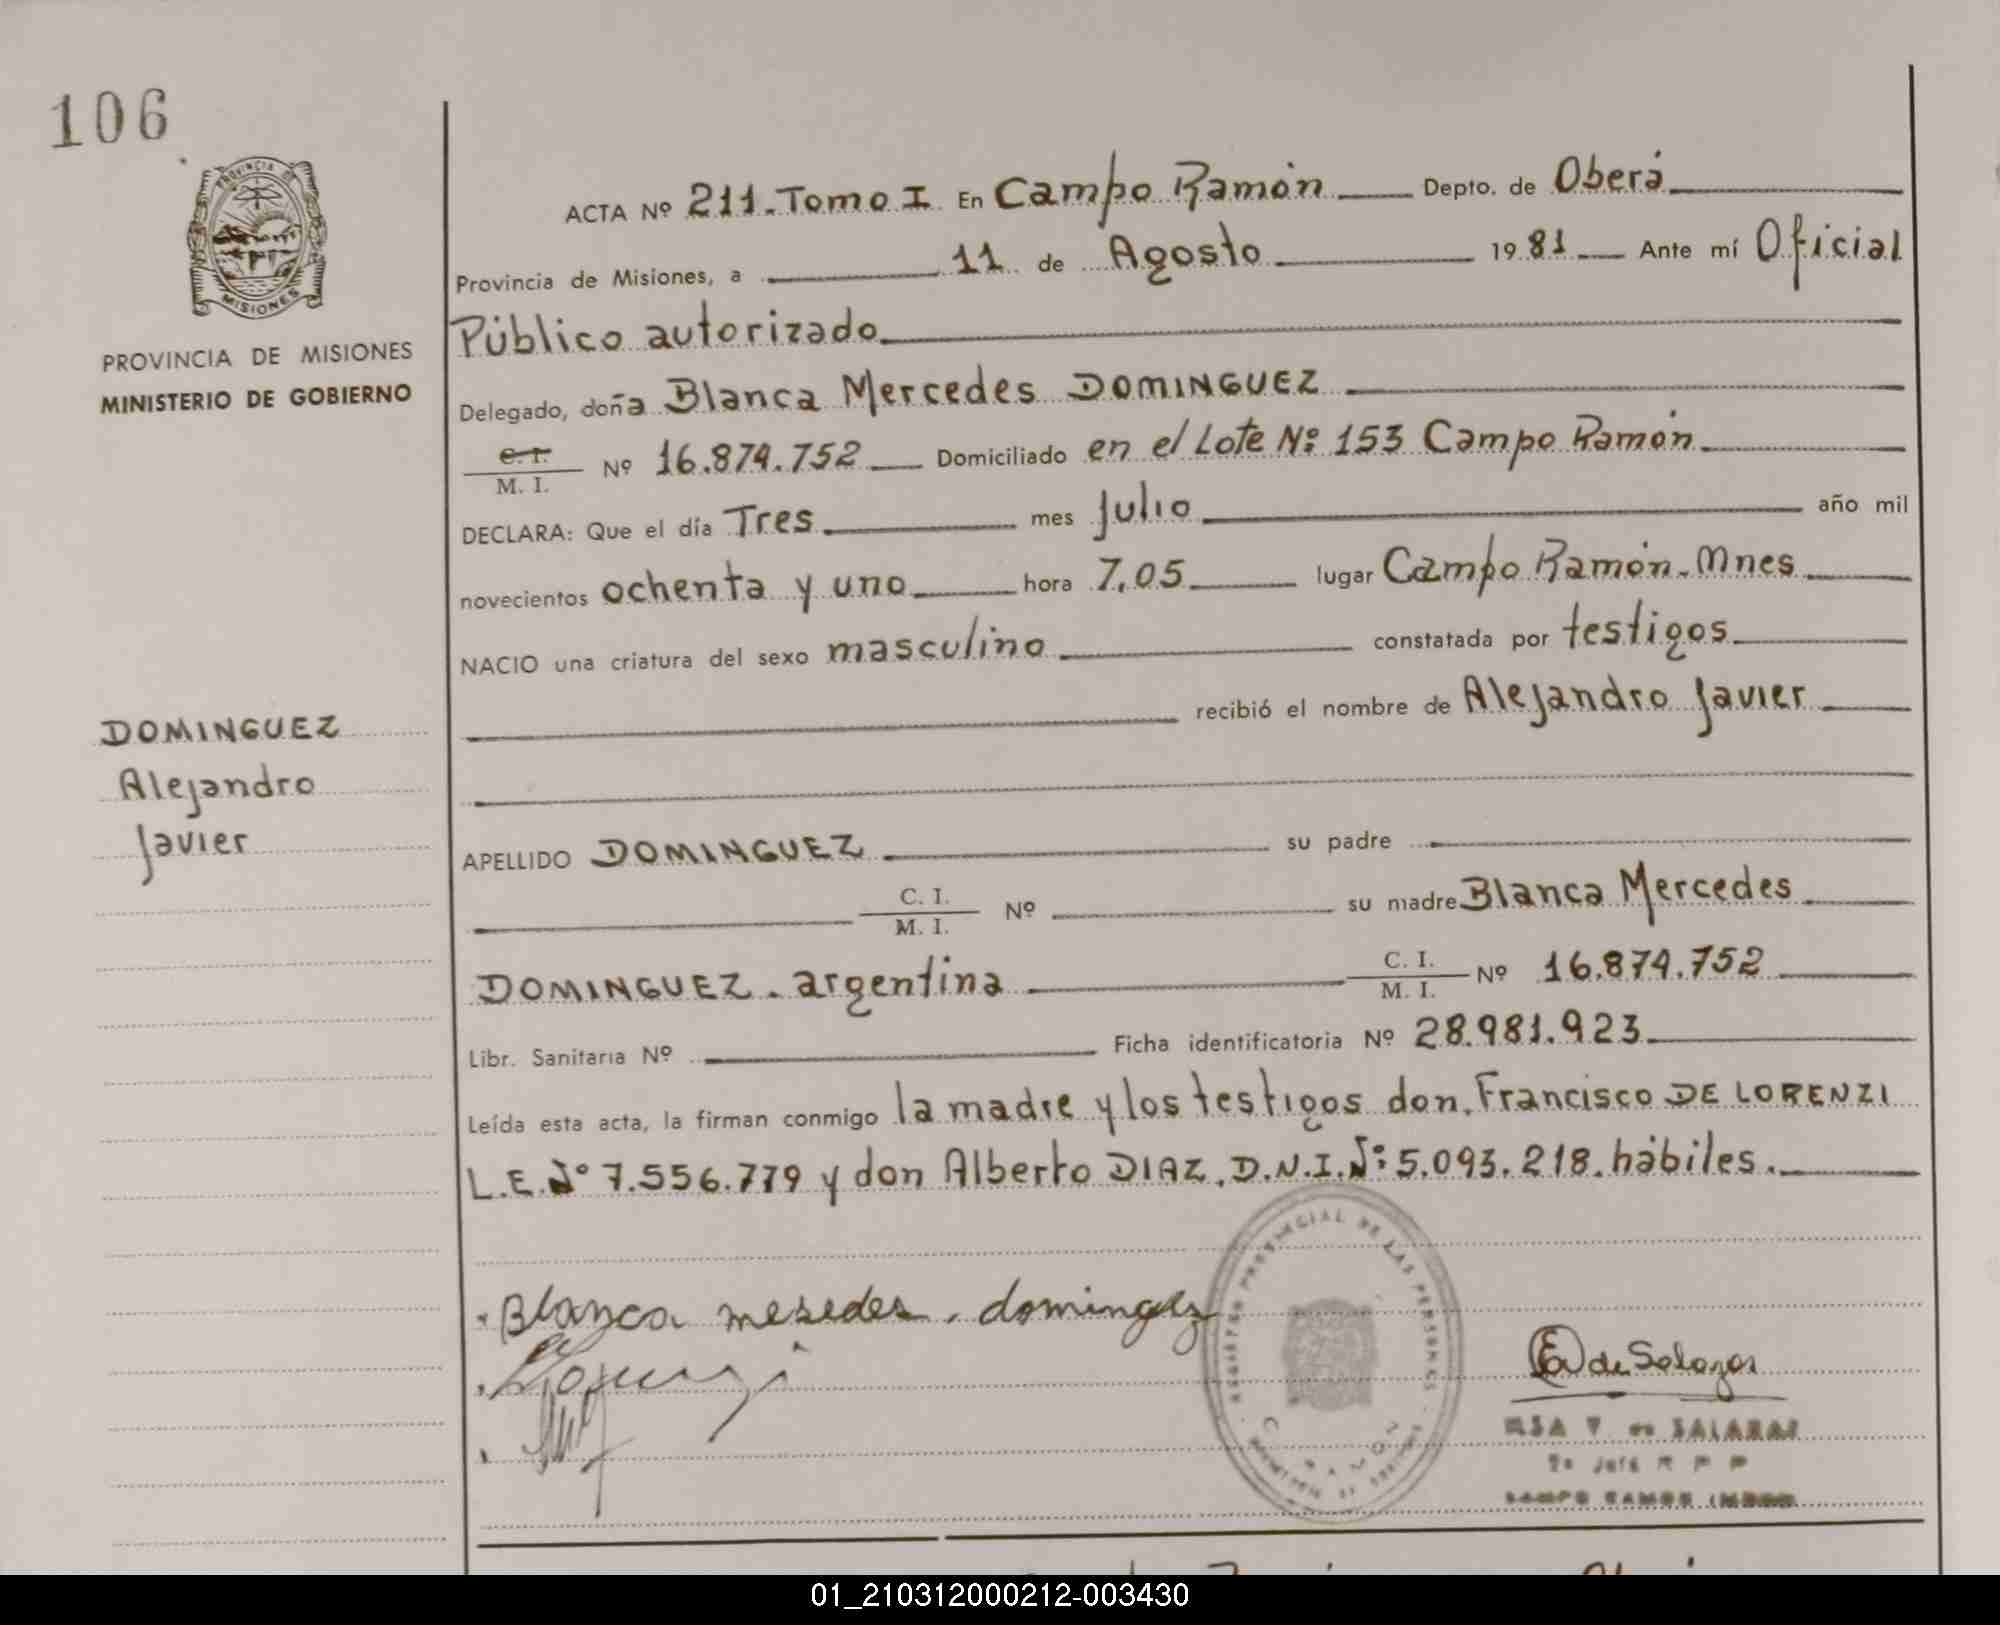 106
PROVINCIA DE
MISIONES
PROVINCIA DE MISIONES
MINISTERIO DE GOBIERNO
DOMINGUEZ
Alejandro
Javier
ACTA Nº 211. Tomo I En Campo Ramón Depto. de Oberá
Provincia de Misiones, a 11 de Agosto 1981 Ante mí Oficial
Público autorizado
Delegado, doña Blanca Mercedes DOMINGUEZ
C. I. / M. I. Nº 16.874.752 Domiciliado en el Lote Nº 153 Campo Ramón
DECLARA: Que el día Tres mes Julio año mil
novecientos ochenta y uno hora 7,05 lugar Campo Ramón. Mnes
NACIO una criatura del sexo masculino constatada por testigos
recibió el nombre de Alejandro Javier
APELLIDO DOMINGUEZ su padre
C. I. / M. I. Nº su madre Blanca Mercedes
DOMINGUEZ. argentina C. I. / M. I. Nº 16.874.752
Libr. Sanitaria Nº Ficha identificatoria Nº 28.981.923
Leída esta acta, la firman conmigo la madre y los testigos don. Francisco DE LORENZI
L.E. Nº 7.556.779 y don Alberto DIAZ. D.N.I. Nº 5.093.218. hábiles.
Blanca mesedes. dominguez
REGISTRO PROVINCIAL DE LAS PERSONAS
C. RAMON
de Salazar
SALAZAR
2º Jefe R P P
CAMPO RAMON
01_210312000212-003430